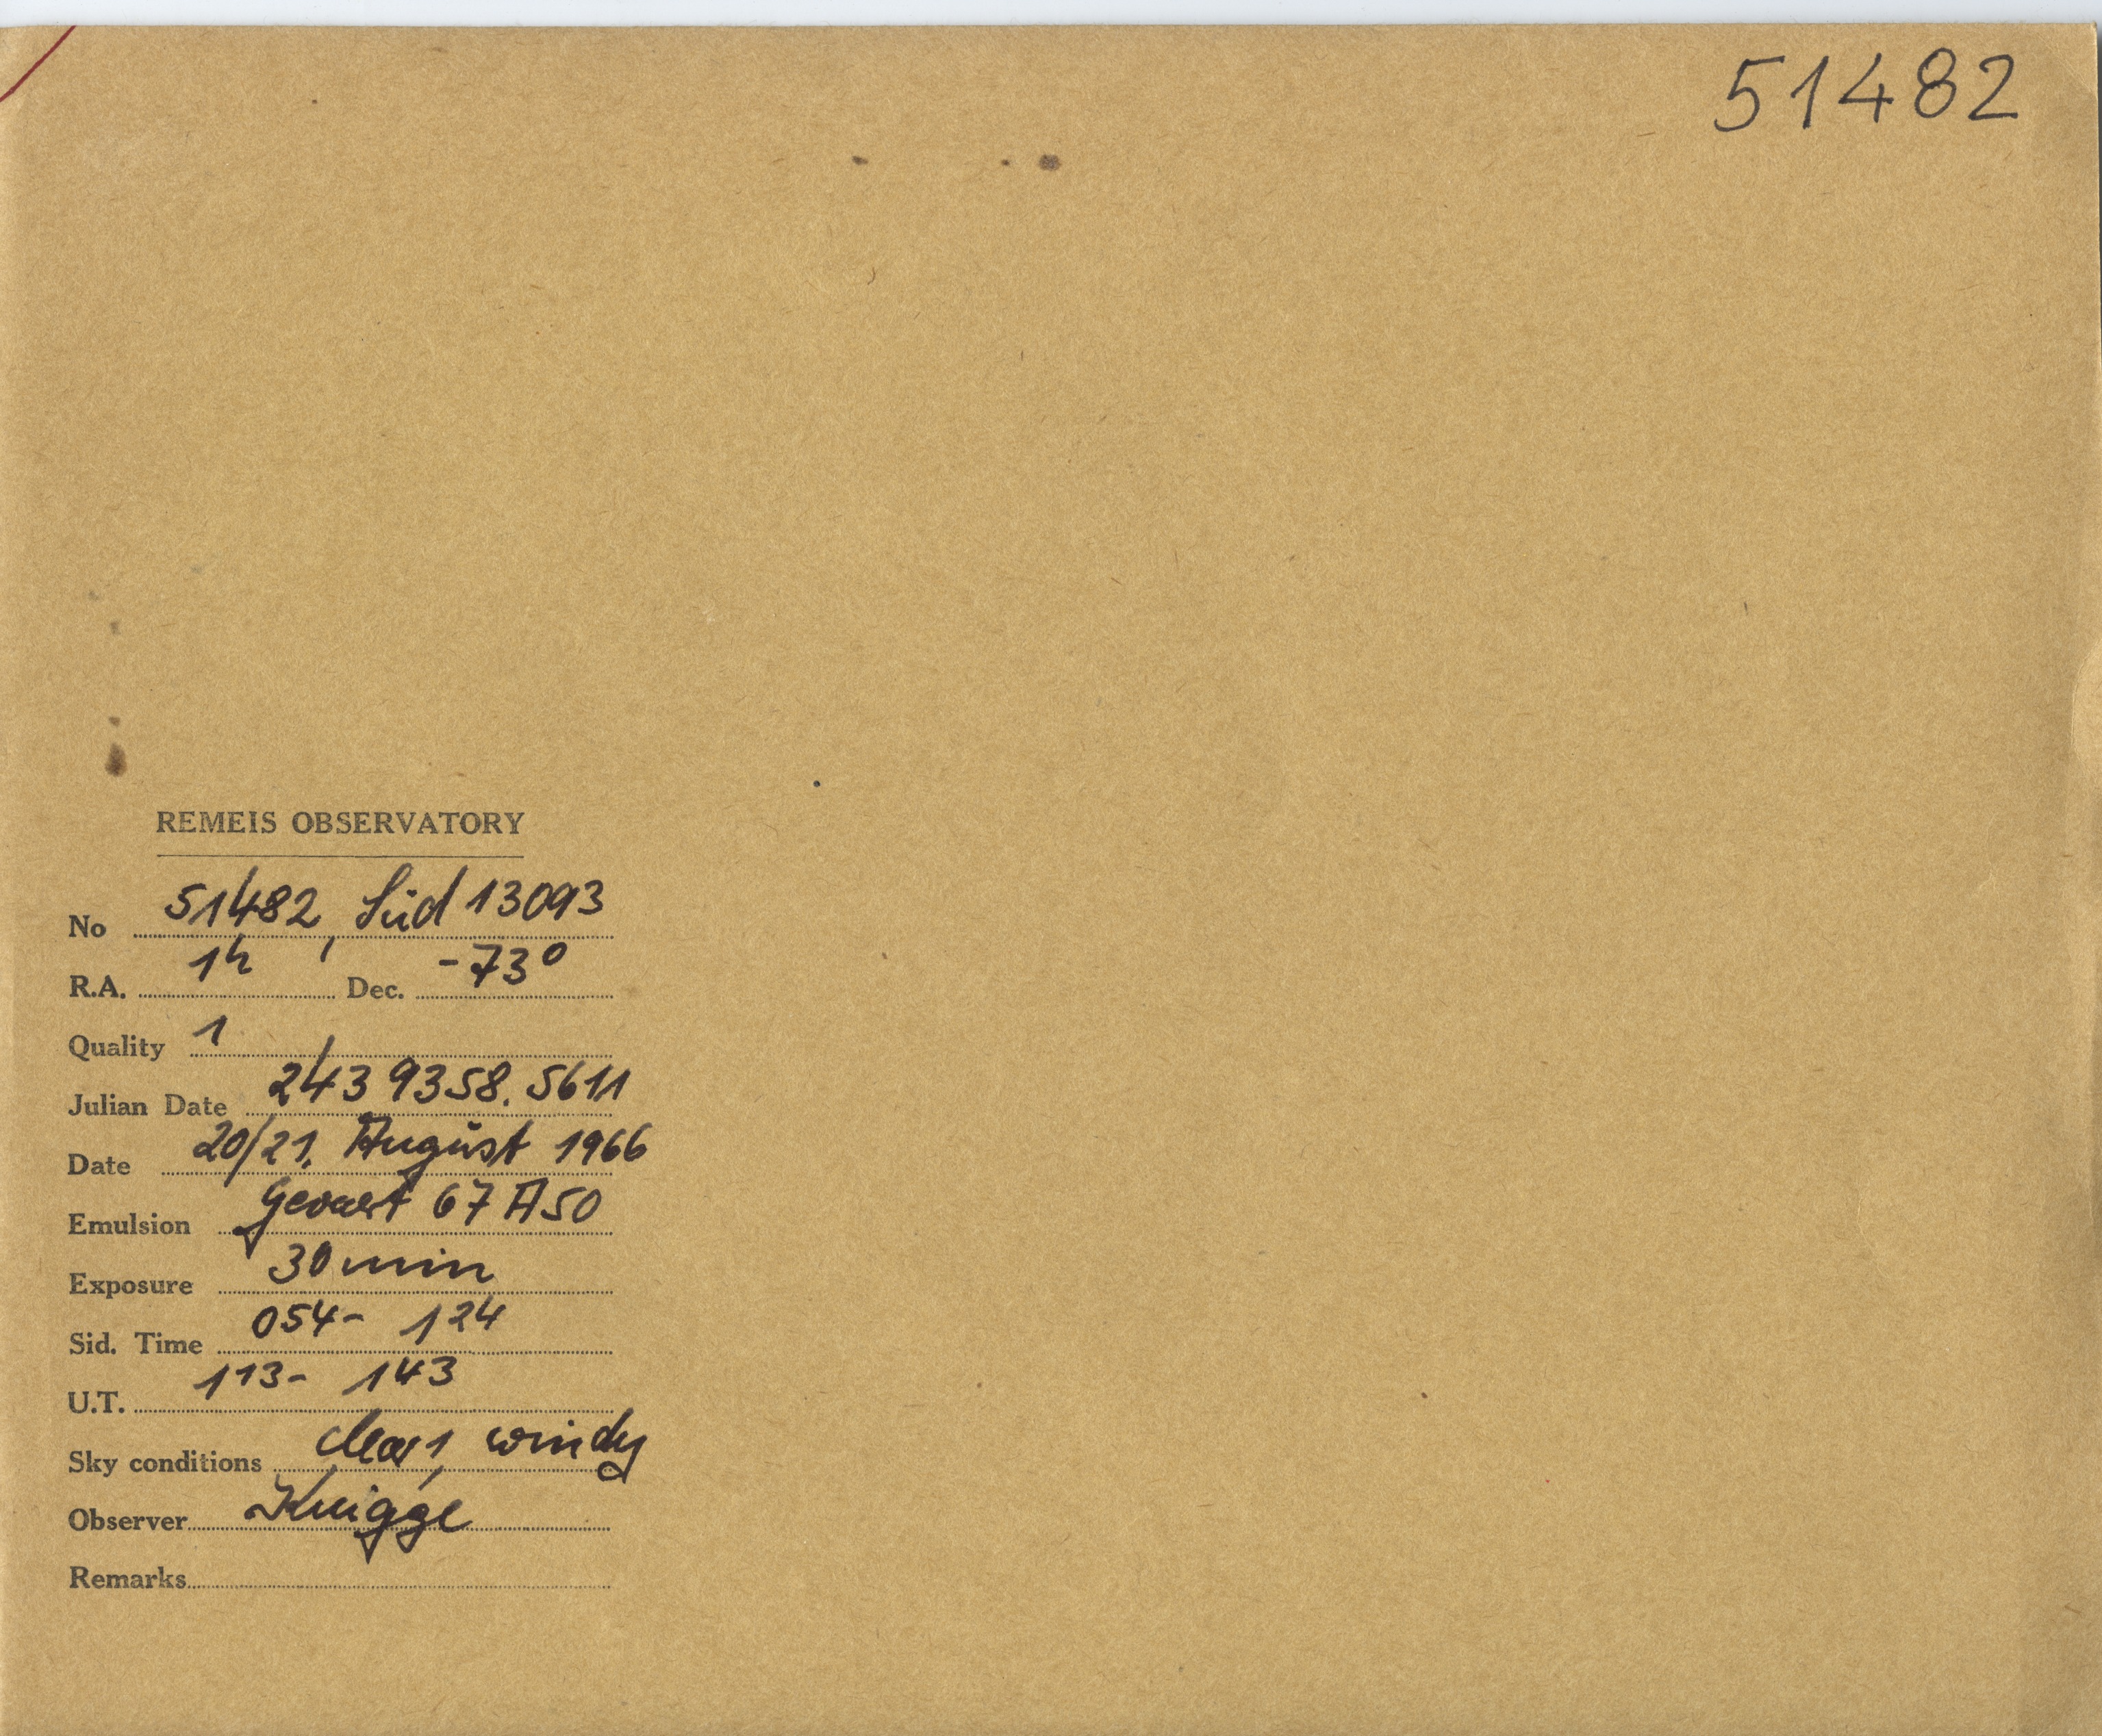 51482
REMEIS OBSERVATORY
No 51482, Süd 13093
R.A. 1h Dec. -73°
Quality 1
Julian Date 243 9358.5611
Date 20/21. August 1966
Emulsion Gevaert 67 A50
Exposure 30 min
Sid. Time 054 - 124
U.T. 113 - 143
Sky conditions clear, windy
Observer Knigge
Remarks